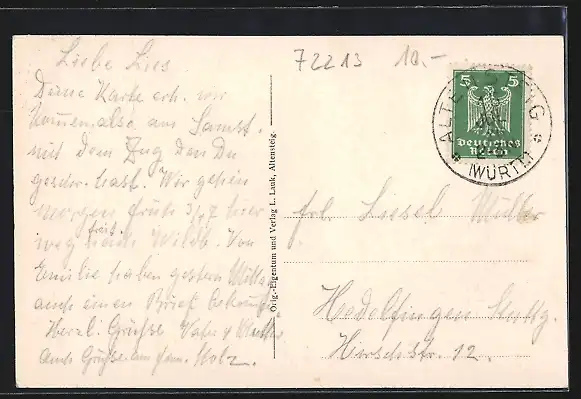 Liebe Lies
Deine Karte erh. wir
kommen also am Samst.
mit dem Zug den Du
geschr. hast. Wir gehen
morgen früh 3/4 7 hier
weg nach Wildb. Von
Emilie haben gestern
auch einen Brief
Herzl. Grüsse Vater &
auch Grüsse an Fam. Holz.
Orig.-Eigentum und Verlag L. Lauk, Altensteig.
72213 10.-
5 5
Deutsches
Reich
ALTENSTEIG
(WÜRTT)
Frl. Liesel Müller
Hedelfingen Stuttg.
Hirschstr. 12.